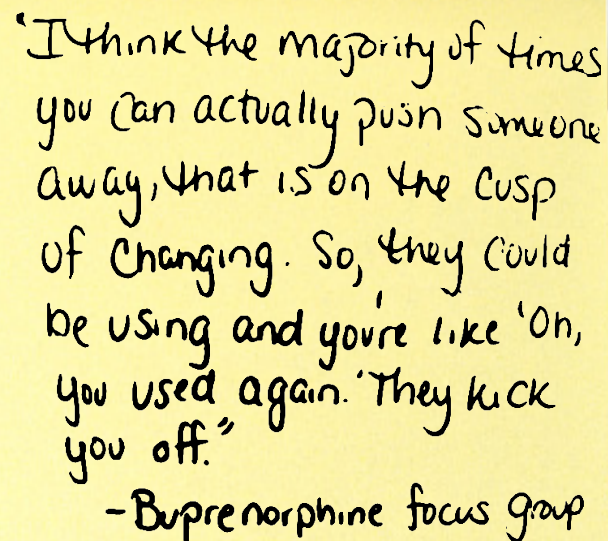 "I think the majority of times
you can actually push someone
away, that is on the cusp
of changing. So, they could
be using and you're like 'Oh,
you used again.' They kick
you off."
-Buprenorphine focus group